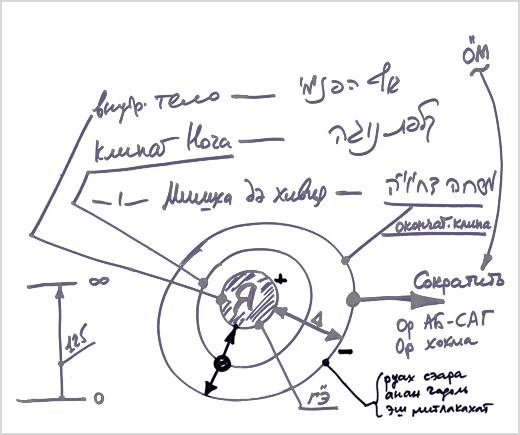 אור מ
внутр. тело — גוף הפנימי
клипат Нога — קליפת נוגה
—"— Мишха дэ хивия — משחא דחיויא
окончат. клипа
Я
+
∞
Сократить
Δ
Ор АБ-САГ
Ор хохма
125
−
руах сэара
анан гадоль
эш митлакахат
0